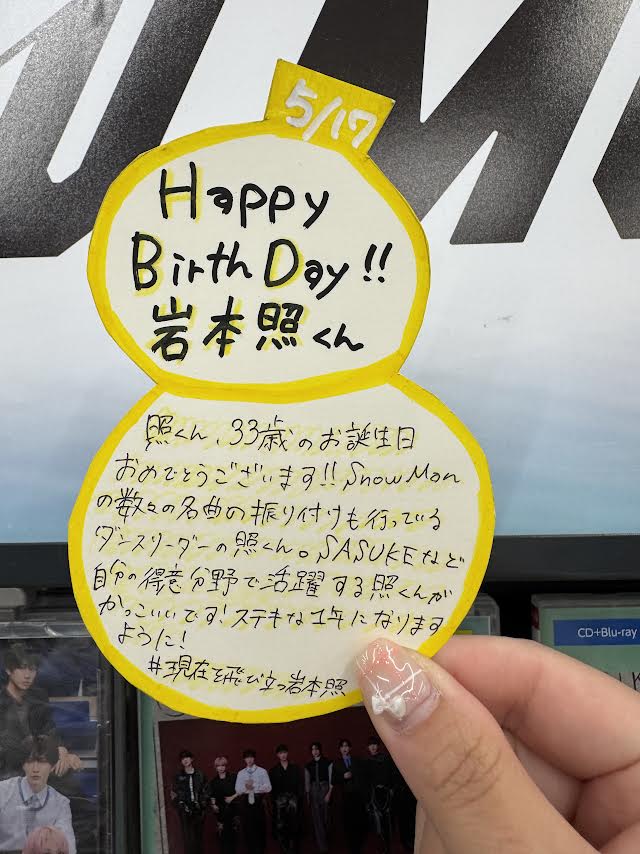 5/17
Happy
Birth Day!!
岩本照くん
照くん、33歳のお誕生日
おめでとうございます!! Snow Man
の数々の名曲の振り付けも行っている
ダンスリーダーの照くん。SASUKEなど
自分の得意分野で活躍する照くんが
かっこいいです!ステキな1年になります
ように!
#現在を飛び立つ岩本照
CD+Blu-ray